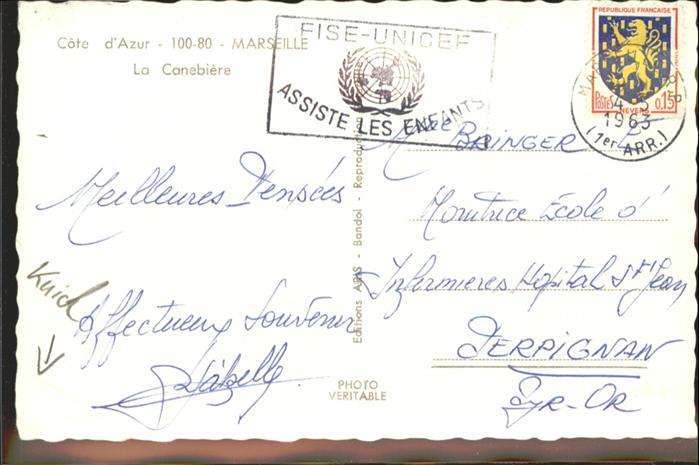 Côte d'Azur - 100-80 - MARSEILLE
La Canebière
FISE-UNICEF
ASSISTE LES ENFANTS
REPUBLIQUE FRANÇAISE
POSTES 0,15
NEVERS
1963
(1er ARR.)
Meilleures Pensées
Affectueux Souvenir
Kuick
Editions ARIS - Bandol - Reproduction
PHOTO
VERITABLE
Melle BRINGER
Monitrice École d'
Infirmieres Hopital St Jean
PERPIGNAN
Pyr-Or